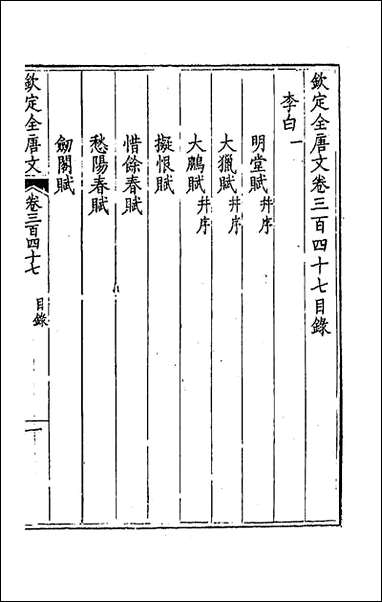 欽定全唐文卷三百四十七目錄
李白一
明堂賦幷序
大獵賦幷序
大鵬賦幷序
擬恨賦
惜餘春賦
愁陽春賦
劒閣賦
欽定全唐文 卷三百四十七 目錄 一